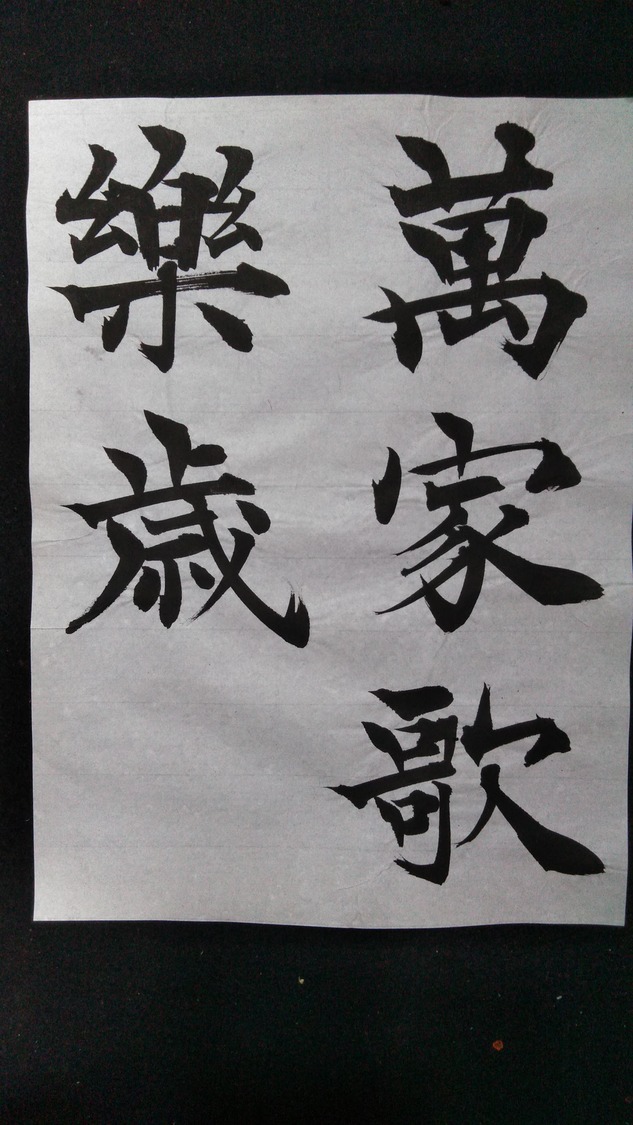 萬家歌
樂歳